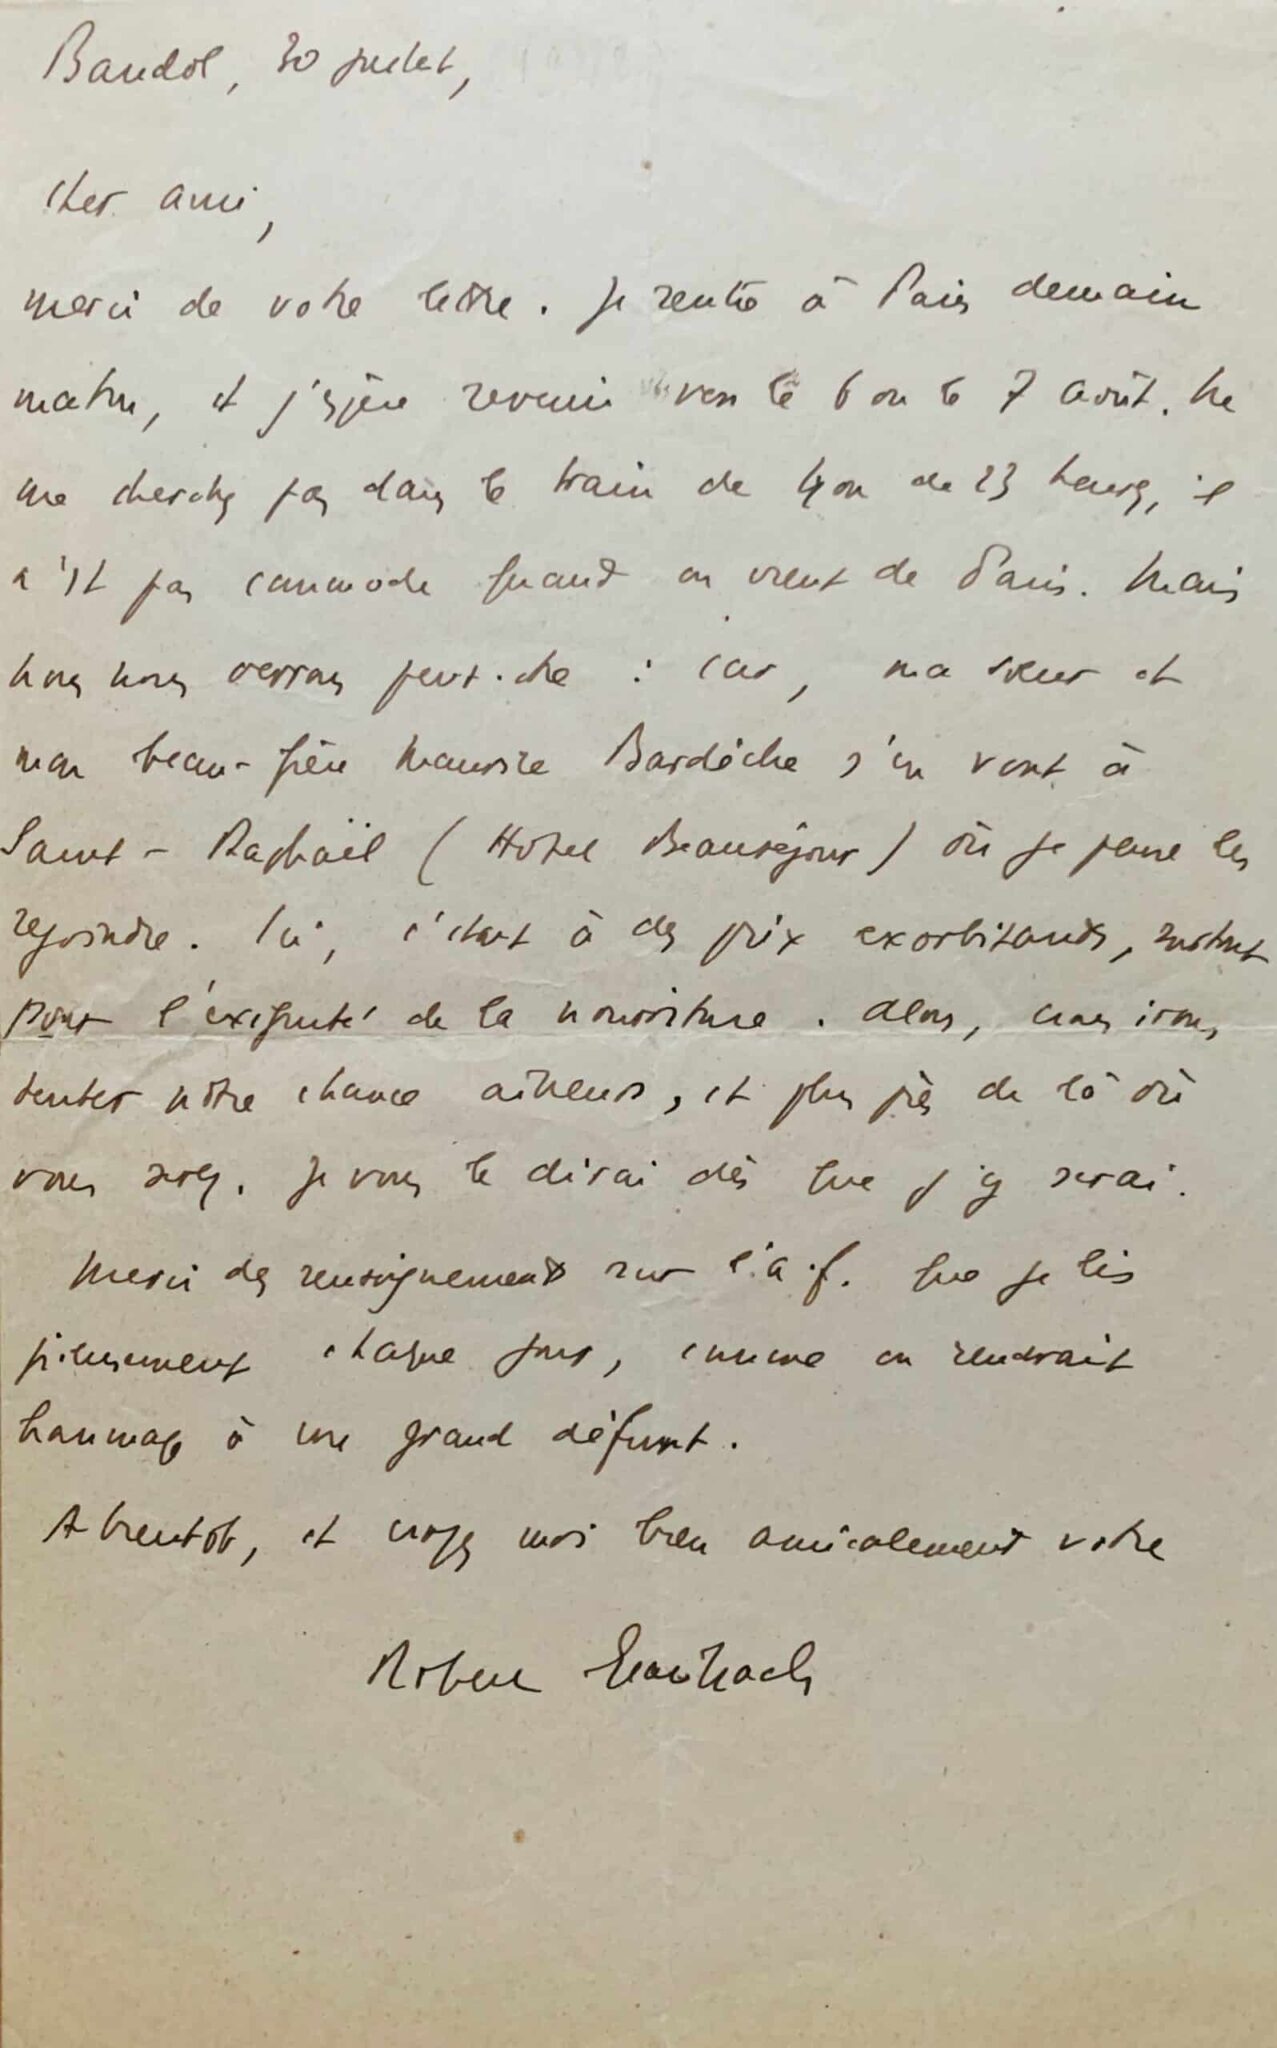 Bandol, 30 juillet,
Cher ami,
merci de votre lettre. Je rentre à Paris demain
matin, et j'espère revenir vers le 6 ou le 7 août. Ne
me cherchez pas dans le train de Lyon de 23 heures, il
n'est pas commode quand on vient de Paris. Mais
nous nous verrons peut-être : car, ma sœur et
mon beau-frère Maurice Bardèche s'en vont à
Saint-Raphaël (Hôtel Beauséjour) où je pense les
rejoindre. Ici, c'était à des prix exorbitants, surtout
pour l'exiguité de la nourriture. Alors, nous irons
tenter notre chance ailleurs, et plus près de là où
vous serez. Je vous le dirai dès que j'y serai.
Merci des renseignements sur l'a.f. que je lis
pieusement chaque jour, comme on rendrait
hommage à un grand défunt.
A bientôt, et croyez moi bien amicalement votre
Robert Brasillach